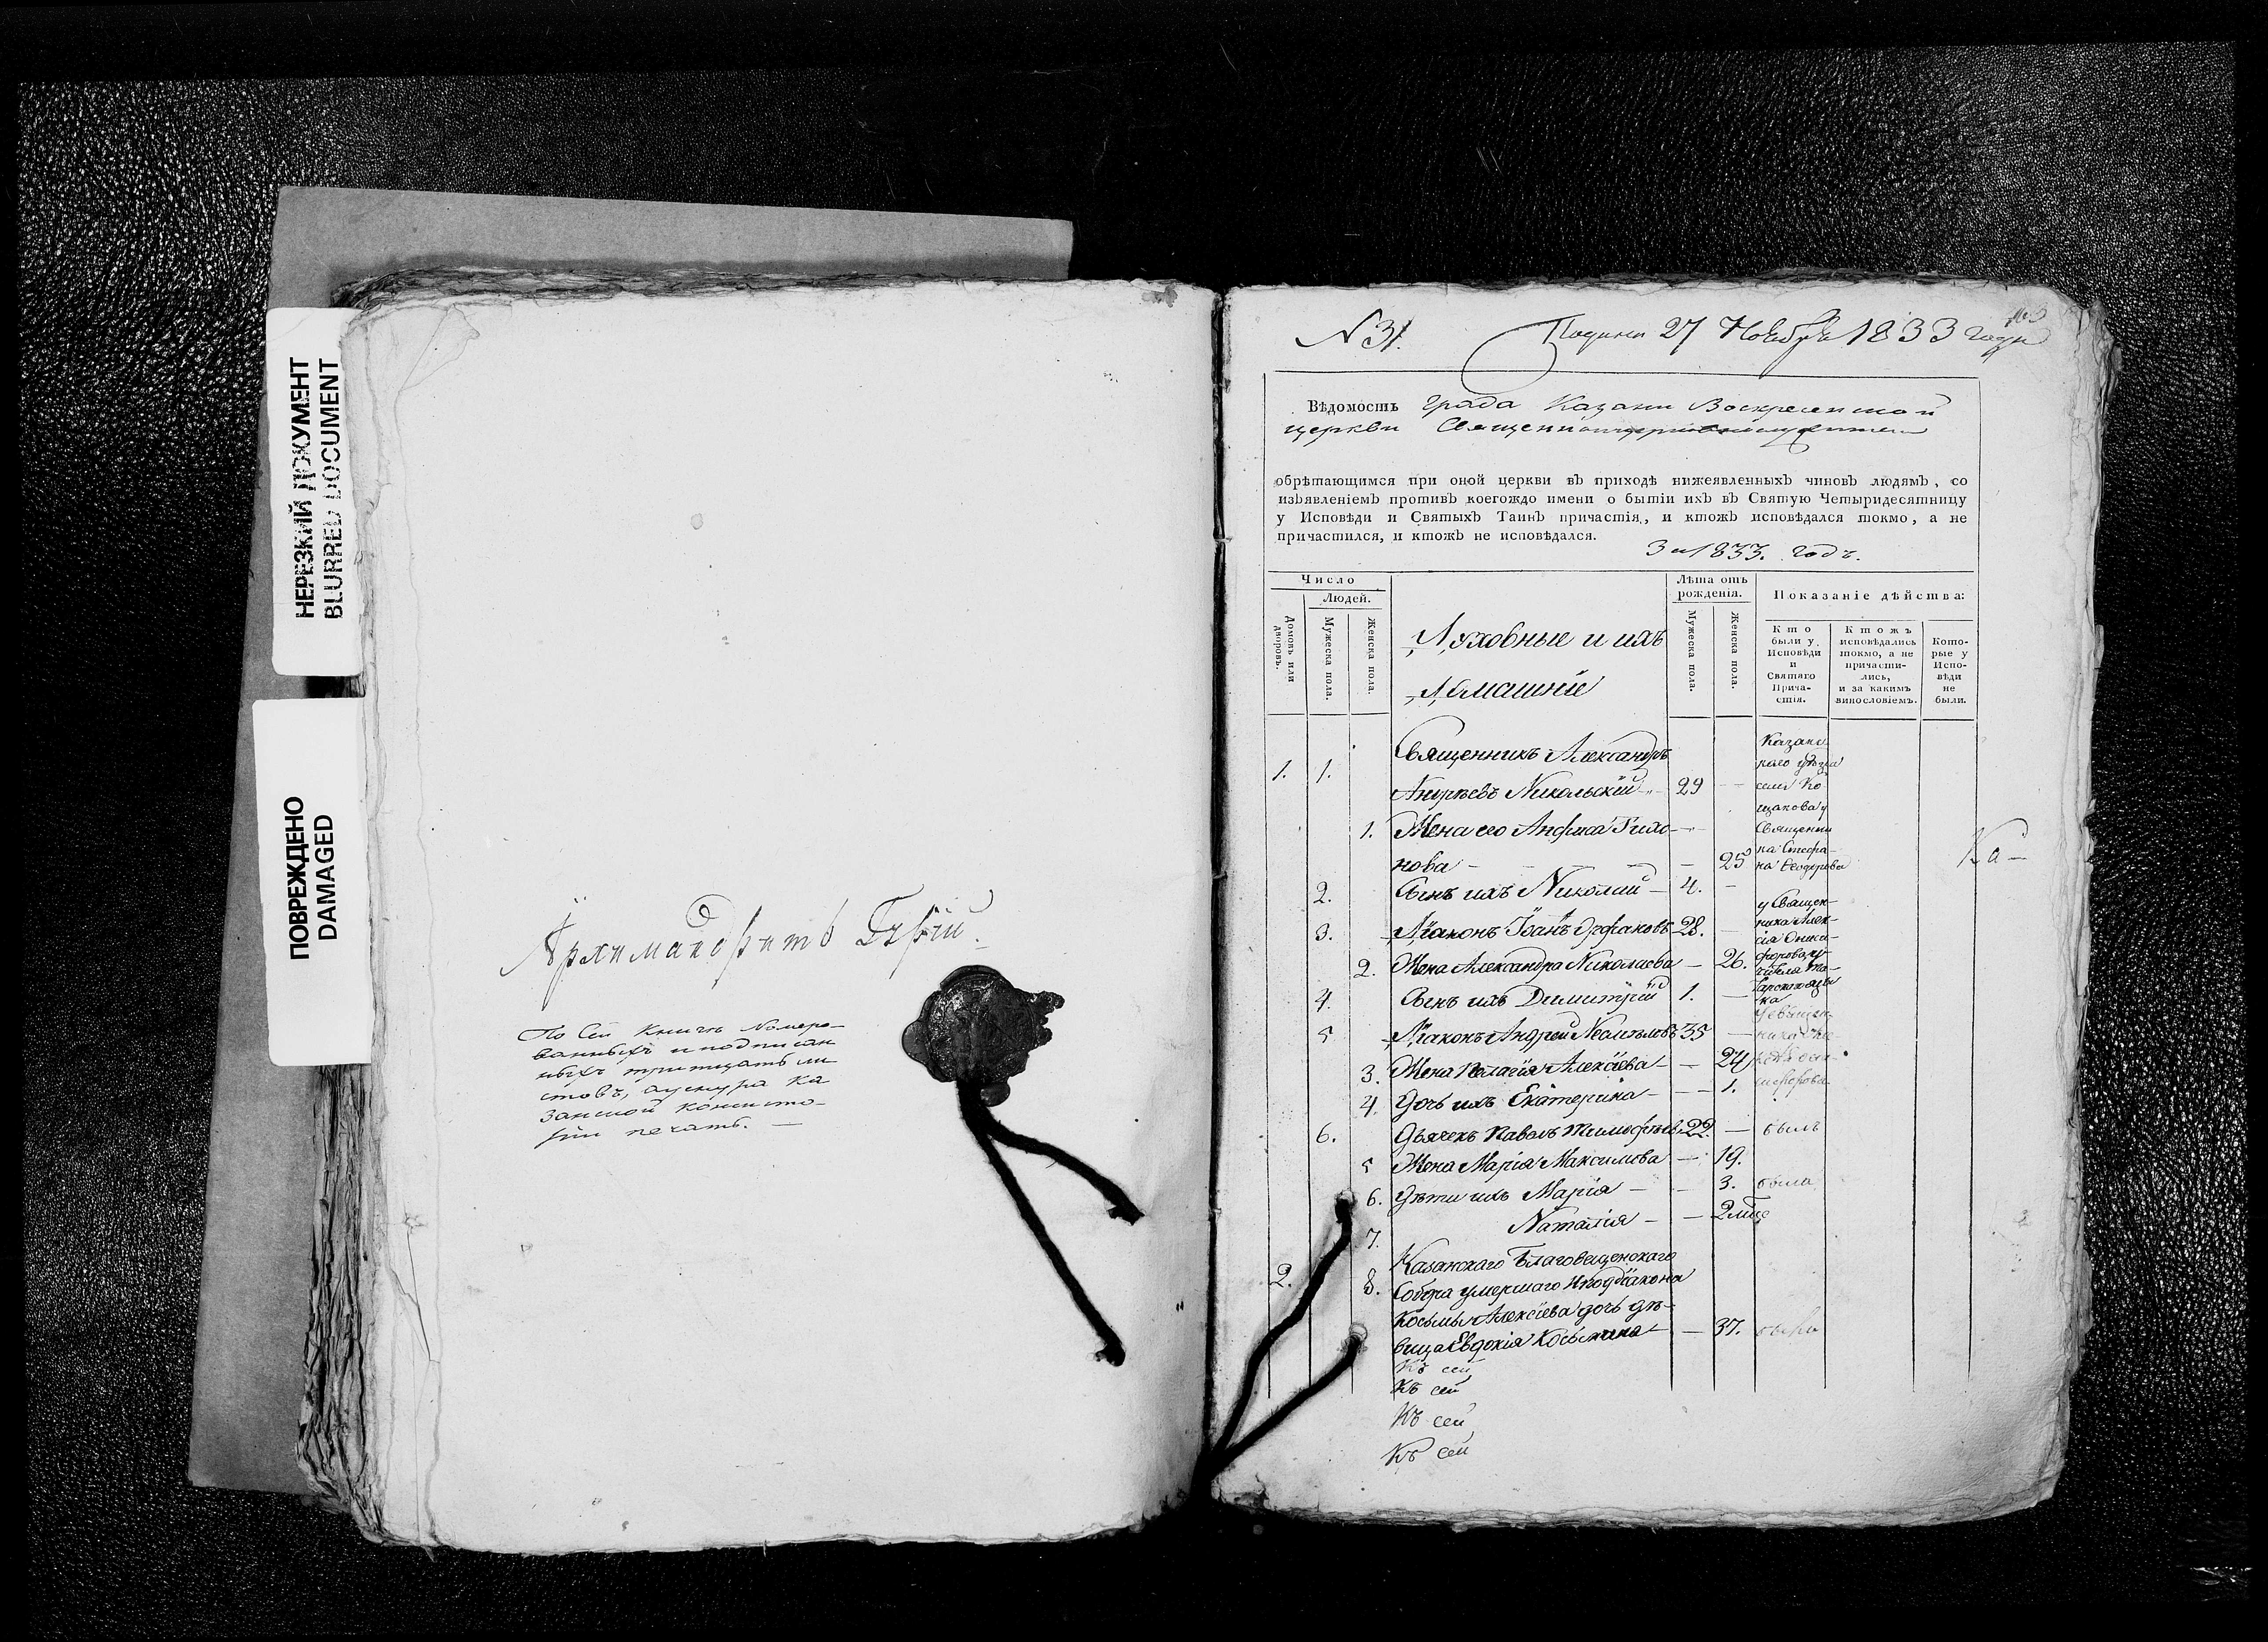 НЕРЕЗКИЙ ДОКУМЕНТ
BLURRED DOCUMENT
ПОВРЕЖДЕНО
DAMAGED
Архимандритъ Гурій.
По Сей Книгѣ Номеро-
ванныхъ и подписан
ныхъ тритцать ли
стовъ, а у снура Ка
занской Консисто-
ріи печать.
N 31.
Подана 27 Ноября 1833 года
Вѣдомость Града Казани Воскресенской
церкви
обрѣтающимся при оной церкви въ приходѣ нижеявленныхъ чиновъ людямъ, со
изъявленіемъ противъ коегождо имени о бытіи ихъ въ Святую Четыридесятницу
у Исповѣди и Святыхъ Таинъ причастія, и ктожъ исповѣдался токмо, а не
причастился, и ктожъ не исповѣдался.
За 1833. годъ.
Число
Людей.
Домовъ или дворовъ.
Мужеска пола.
Женска пола.
Духовные и ихъ
Домашніе
Лѣта отъ рожденія.
Мужеска пола.
Женска пола.
Показаніе дѣйства:
Кто были у Исповѣди и Святаго Прича-стія.
Ктожъ исповѣдались токмо, а не причасти-лись, и за какимъ винословіемъ.
Кото-рые у Испо-вѣди не были.
1. 1. Священникъ Александръ
Андреевъ Никольскій 29
1. Жена его Анфиса Тихо-
нова 25
2. Сынъ ихъ Николай 4.
3. Діаконъ Іоаннъ 28.
2. Жена Александра Николаева 26.
4. Сынъ ихъ Димитрій 1.
5 Діаконъ Андрей 35
3. Жена Пелагія Алексіева 24
4. Дочь ихъ Екатерина 1.
6. Дьячекъ Павелъ Тимофѣевъ 22. былъ
5 Жена Марія Максимова 19.
6. Дѣти ихъ Марія 3. была
7. Наталія 2 мце
2. 8. Казанскаго Благовещенскаго
Собора умершаго Иподіакона
Косьмы Алексіева дочь дѣ-
вица Евдокія Косьмина 37.
Казанс
каго уѣзда
села
у
Священни
ка Стефа-
на Ѳеодорова
у Священ-
ника Алек-
сія Ониси-
форова
Ка-
Къ сей
Къ сей
Къ сей
Къ сей